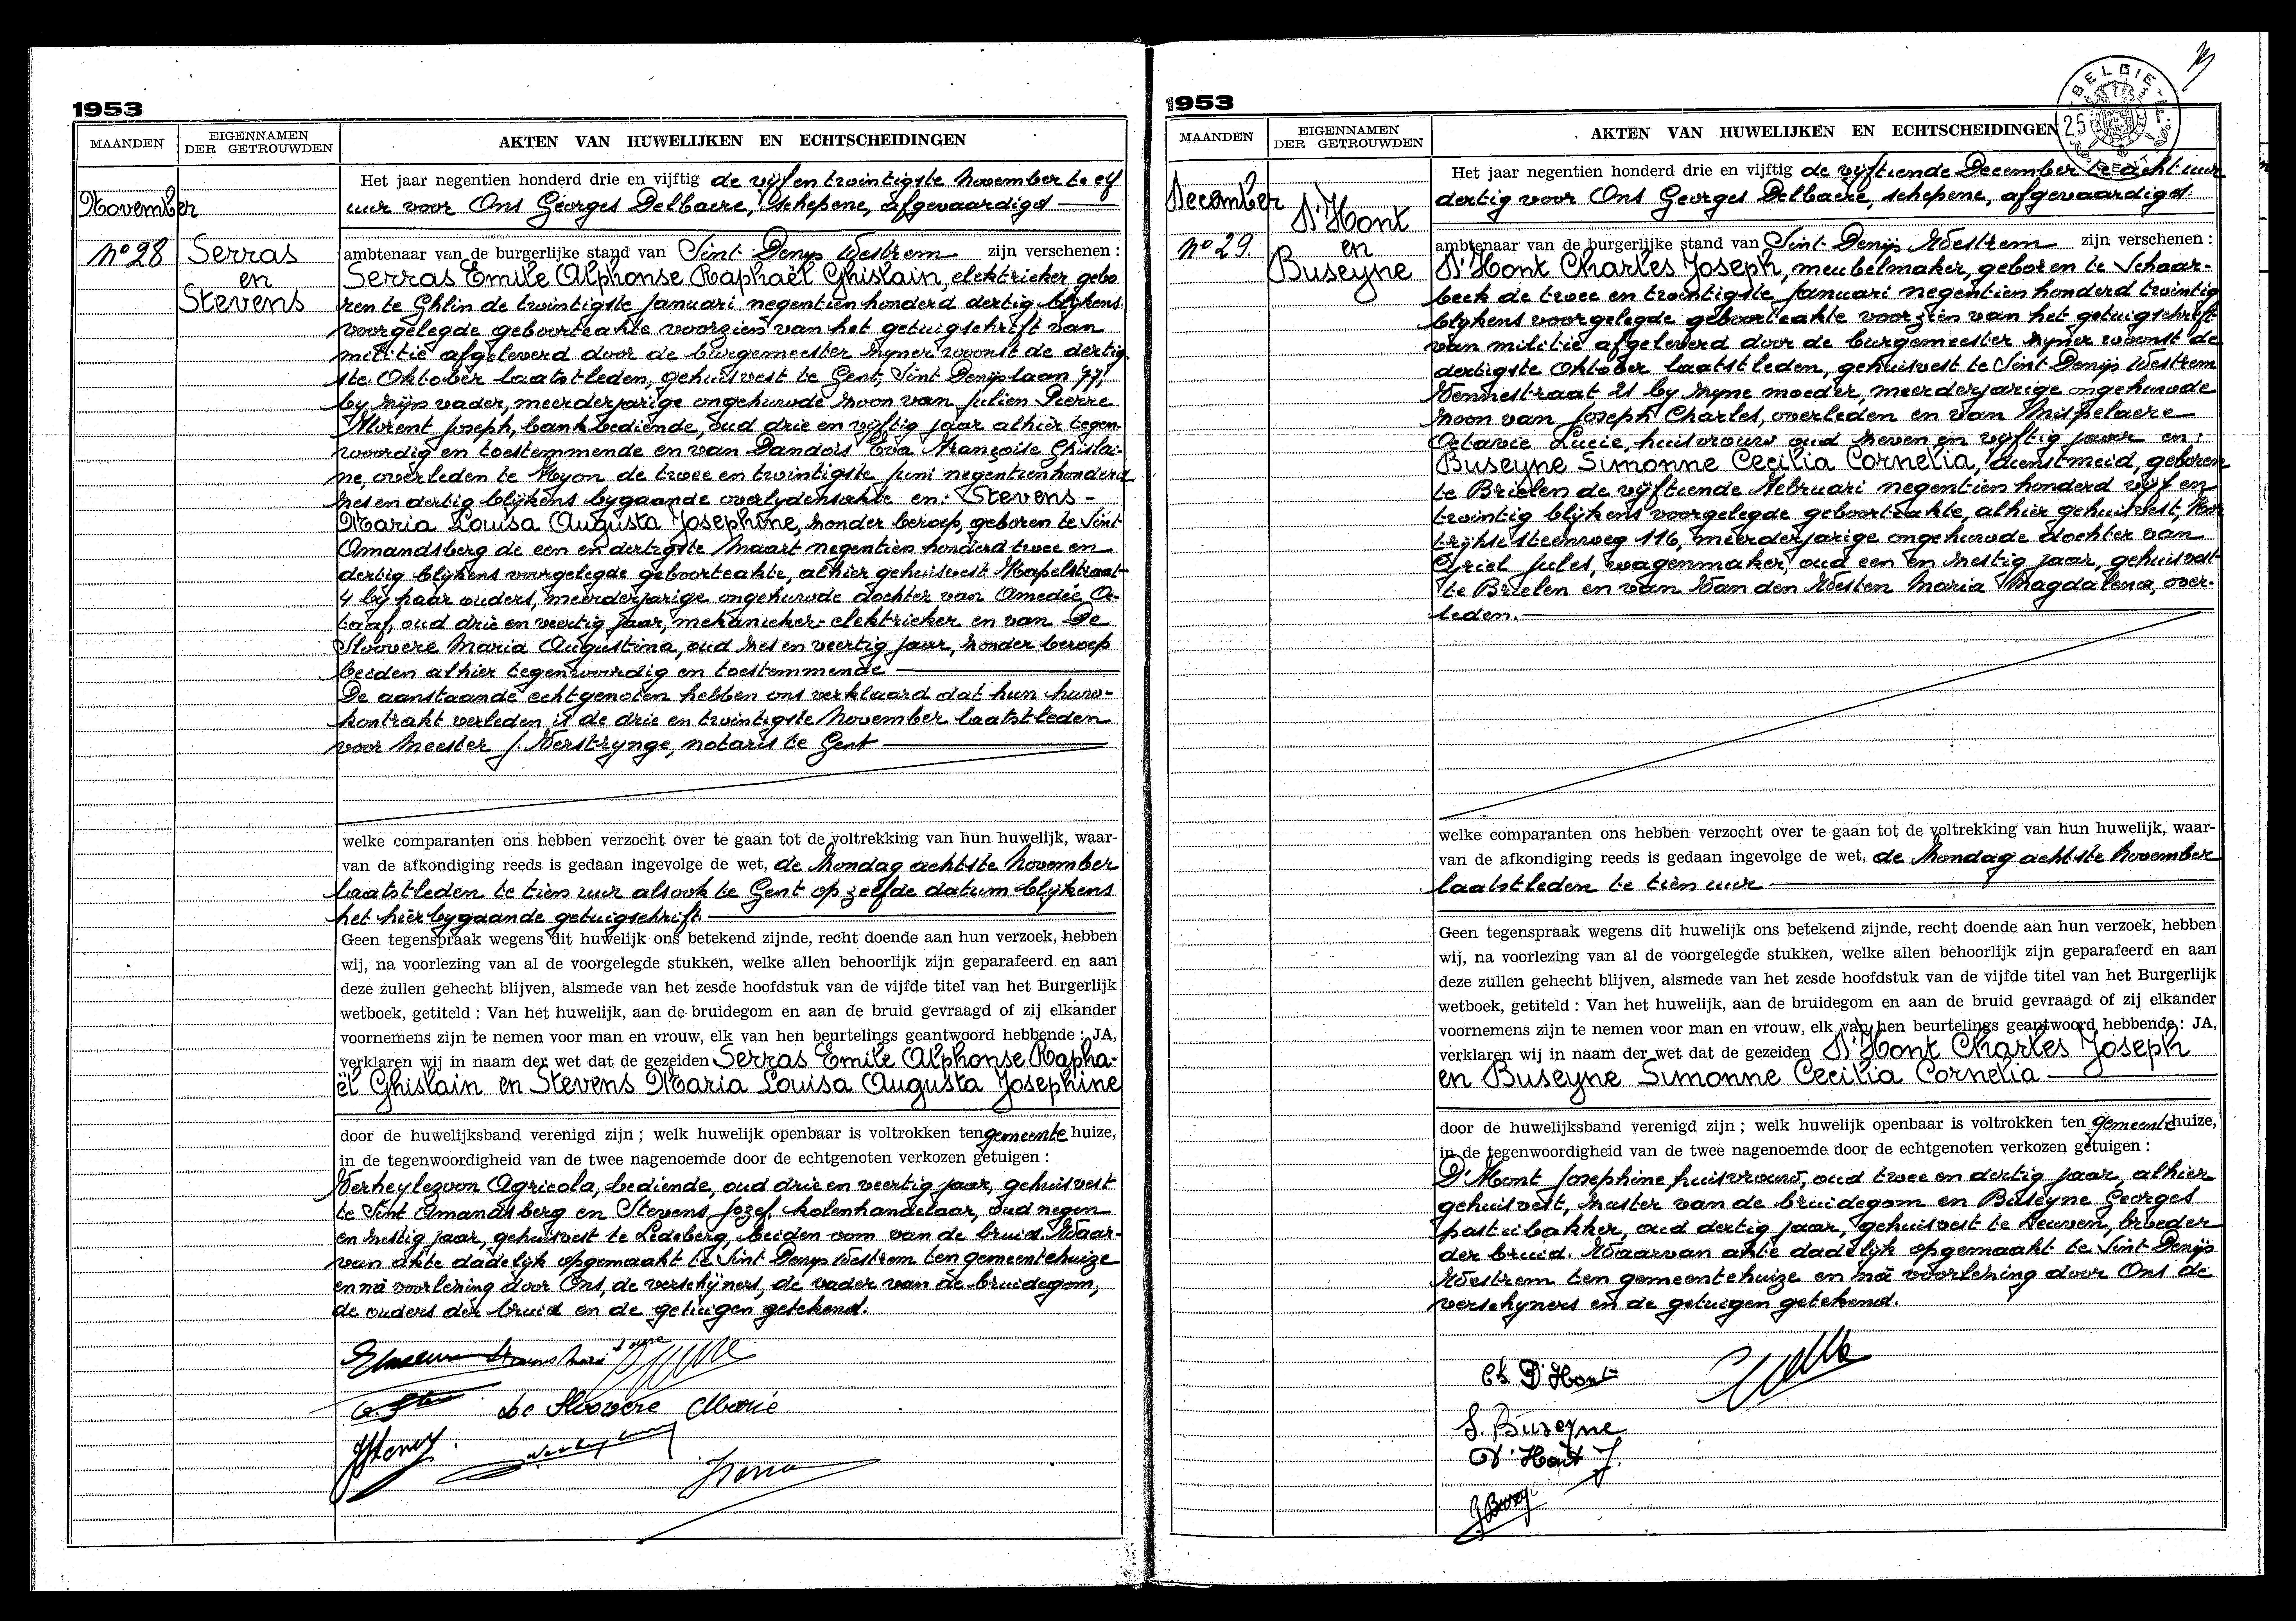 1953
MAANDEN
EIGENNAMEN
DER GETROUWDEN
AKTEN VAN HUWELIJKEN EN ECHTSCHEIDINGEN
November
No 28
Serras
en
Stevens
Het jaar negentien honderd drie en vijftig de vijf en twintigste November te elf
uur voor Ons Georges Delbaere, schepene, afgevaardigd
ambtenaar van de burgerlijke stand van Sint Denys Westrem zijn verschenen :
Serras Emile Alphonse Raphaël Ghislain, elektrieker, gebo
ren te Ghlin de twintigste Januari negentien honderd dertig blijkens
voorgelegde geboorteakte voorzien van het getuigschrift van
militie afgeleverd door de burgemeester zyner woonst de dertig
ste Oktober laatstleden, gehuisvest te Gent, Sint Denyslaan 77,
by zijn vader, meerderjarige ongehuwde zoon van Julien Pierre
Florent Joseph, bankbediende, oud drie en vijftig jaar alhier tegen-
woordig en toestemmende en van Dandois Eva Françoise Ghislai-
ne, overleden te Hyon de twee en twintigste Juni negentienhonderd
zes en dertig blijkens bygaande overlydensakte en: Stevens -
Maria Louisa Augusta Josephine, zonder beroep, geboren te Sint
Amandsberg de een en dertigste Maart negentien honderd twee en
dertig blijkens voorgelegde geboorteakte, alhier gehuisvest Kapelstraat
4 by haar ouders, meerderjarige ongehuwde dochter van Amedée Oc-
taaf, oud drie en veertig jaar, mekanieker-elektrieker en van De
Sloovere Maria Augustina, oud zes en veertig jaar, zonder beroep
beiden alhier tegenwoordig en toestemmende
De aanstaande echtgenoten hebben ons verklaard dat hun huw-
kontrakt verleden is de drie en twintigste November laatstleden
voor Meester J. Verstrynge, notaris te Gent
welke comparanten ons hebben verzocht over te gaan tot de voltrekking van hun huwelijk, waar-
van de afkondiging reeds is gedaan ingevolge de wet, de Zondag achtste November
laatstleden te tien uur alsook te Gent op zelfde datum blijkens
het hierbygaande getuigschrift.
Geen tegenspraak wegens dit huwelijk ons betekend zijnde, recht doende aan hun verzoek, hebben
wij, na voorlezing van al de voorgelegde stukken, welke allen behoorlijk zijn geparafeerd en aan
deze zullen gehecht blijven, alsmede van het zesde hoofdstuk van de vijfde titel van het Burgerlijk
wetboek, getiteld : Van het huwelijk, aan de bruidegom en aan de bruid gevraagd of zij elkander
voornemens zijn te nemen voor man en vrouw, elk van hen beurtelings geantwoord hebbende : JA,
verklaren wij in naam der wet dat de gezeiden Serras Emile Alphonse Rapha-
ël Ghislain en Stevens Maria Louisa Augusta Josephine
door de huwelijksband verenigd zijn ; welk huwelijk openbaar is voltrokken ten gemeente huize,
in de tegenwoordigheid van de twee nagenoemde door de echtgenoten verkozen getuigen :
Verheylezoon Agricola, bediende, oud drie en veertig jaar, gehuisvest
te Sint Amandsberg en Stevens Jozef, kolenhandelaar, oud negen
en zestig jaar, gehuisvest te Ledeberg, beiden oom van de bruid. Waar-
van akte dadelijk opgemaakt te Sint Denys Westrem ten gemeentehuize
en na voorlezing door Ons, de verschijners, de vader van de bruidegom,
de ouders der bruid en de getuigen getekend.
de Sloovere Marie
1953
MAANDEN
EIGENNAMEN
DER GETROUWDEN
AKTEN VAN HUWELIJKEN EN ECHTSCHEIDINGEN
BELGIE
25
December
No 29
D'Hont
en
Buseyne
Het jaar negentien honderd drie en vijftig de vijftiende December te acht uur
dertig voor Ons Georges Delbaere, schepene, afgevaardigd
ambtenaar van de burgerlijke stand van Sint-Denijs Westrem zijn verschenen :
D'Hont Charles Joseph, meubelmaker, geboren te Schaar-
beek de twee en twintigste Januari negentien honderd twintig
blykens voorgelegde geboorteakte voorzien van het getuigschrift
van militie afgeleverd door de burgemeester zyner woonst de
dertigste Oktober laatstleden, gehuisvest te Sint Denijs Westrem
Vennestraat 21 by zyne moeder, meerderjarige ongehuwde
zoon van Joseph Charles, overleden en van Mispelaere
Octavie Lucie, huisvrouw oud zeven en vijftig jaar en:
Buseyne Simonne Cecilia Cornelia, dienstmeid, geboren
te Brielen de vijftiende Februari negentien honderd vijf en
twintig blijkens voorgelegde geboorteakte, alhier gehuisvest Kor
trijkse steenweg 116, meerderjarige ongehuwde dochter van
Cyriel Jules, wagenmaker, oud een en zestig jaar, gehuisvest
te Brielen en van Van den Westen Maria Magdalena, over-
leden.
welke comparanten ons hebben verzocht over te gaan tot de voltrekking van hun huwelijk, waar-
van de afkondiging reeds is gedaan ingevolge de wet, de Zondag achtste November
laatstleden te tien uur
Geen tegenspraak wegens dit huwelijk ons betekend zijnde, recht doende aan hun verzoek, hebben
wij, na voorlezing van al de voorgelegde stukken, welke allen behoorlijk zijn geparafeerd en aan
deze zullen gehecht blijven, alsmede van het zesde hoofdstuk van de vijfde titel van het Burgerlijk
wetboek, getiteld : Van het huwelijk, aan de bruidegom en aan de bruid gevraagd of zij elkander
voornemens zijn te nemen voor man en vrouw, elk van hen beurtelings geantwoord hebbende : JA,
verklaren wij in naam der wet dat de gezeiden D'Hont Charles Joseph
en Buseyne Simonne Cecilia Cornelia
door de huwelijksband verenigd zijn ; welk huwelijk openbaar is voltrokken ten gemeentehuize,
in de tegenwoordigheid van de twee nagenoemde door de echtgenoten verkozen getuigen :
D'Hont Josephine, huisvrouw, oud twee en dertig jaar, alhier
gehuisvest, zuster van de bruidegom en Buseyne Georges
pasteibakker, oud dertig jaar, gehuisvest te Leuven, broeder
der bruid. Waarvan akte dadelijk opgemaakt te Sint Denijs
Westrem ten gemeentehuize en na voorlezing door Ons de
verschyners en de getuigen getekend.
Ch. D'Hont
S. Buseyne
D'Hont J.